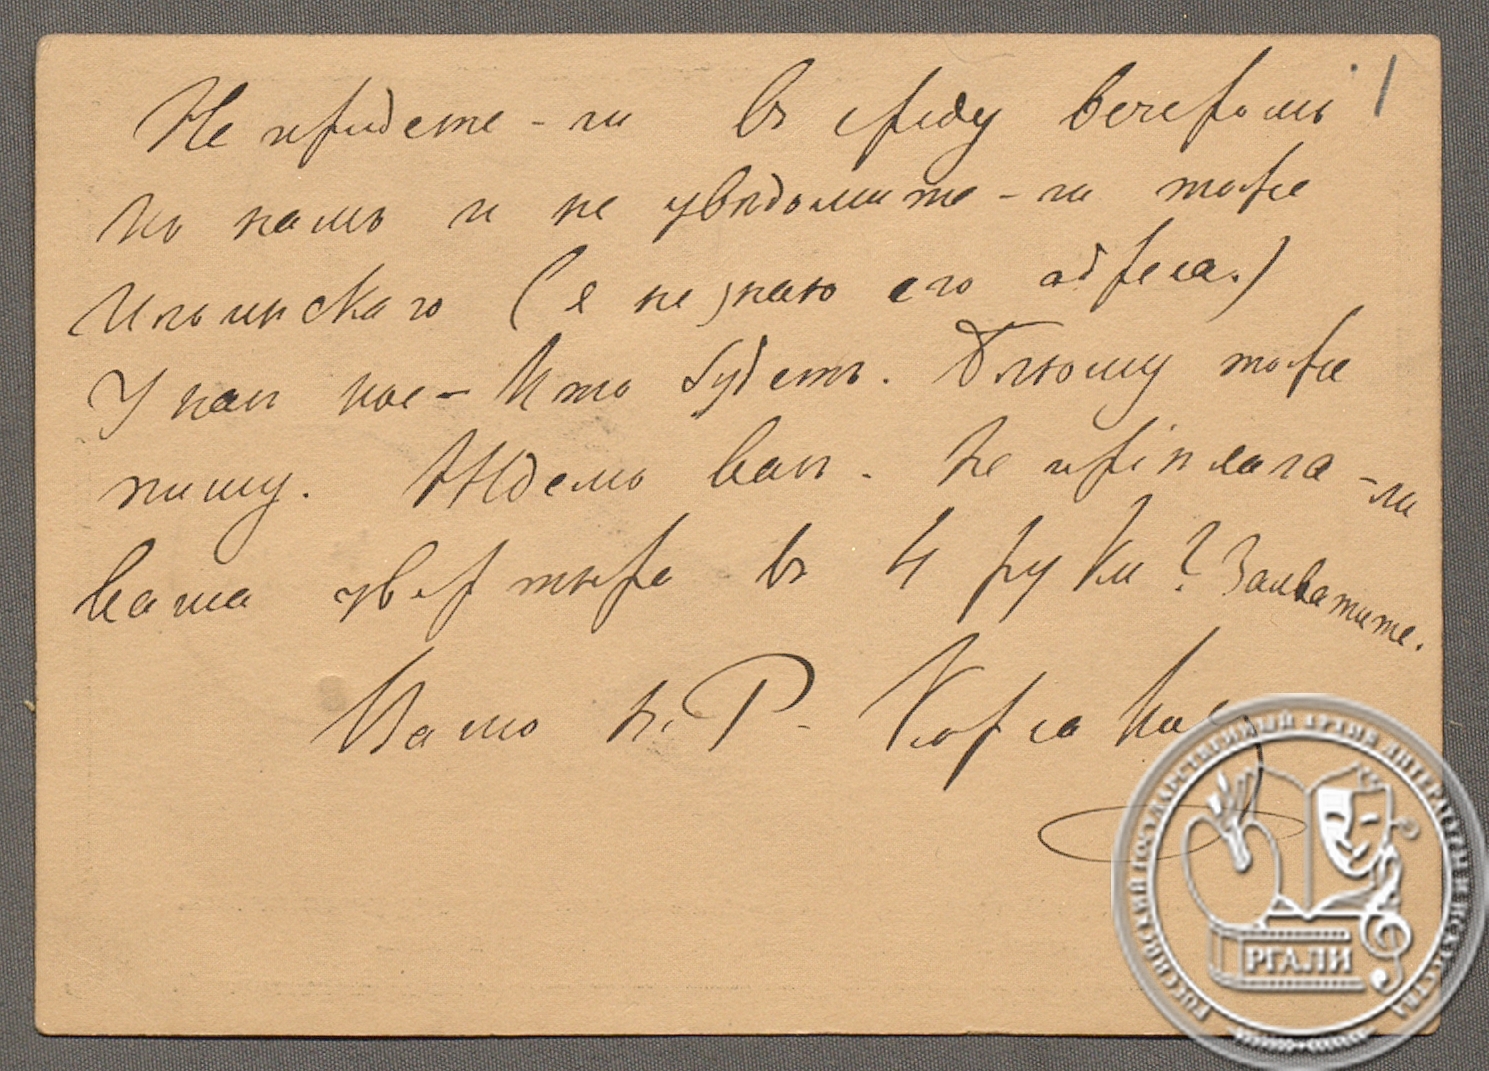 Не придете-ли въ среду вечеромъ 1
къ намъ и не увѣдомите-ли тоже
Ильинскаго (я не знаю его адреса.)
У нас кое-кто будетъ. Блюму тоже
пишу. Ждемъ вас. Не
ваша увертюра въ 4 руки? Захватите.
Вашъ Н. Р.-Корсаков
РОССИЙСКИЙ ГОСУДАРСТВЕННЫЙ АРХИВ ЛИТЕРАТУРЫ И ИСКУССТВА
РГАЛИ